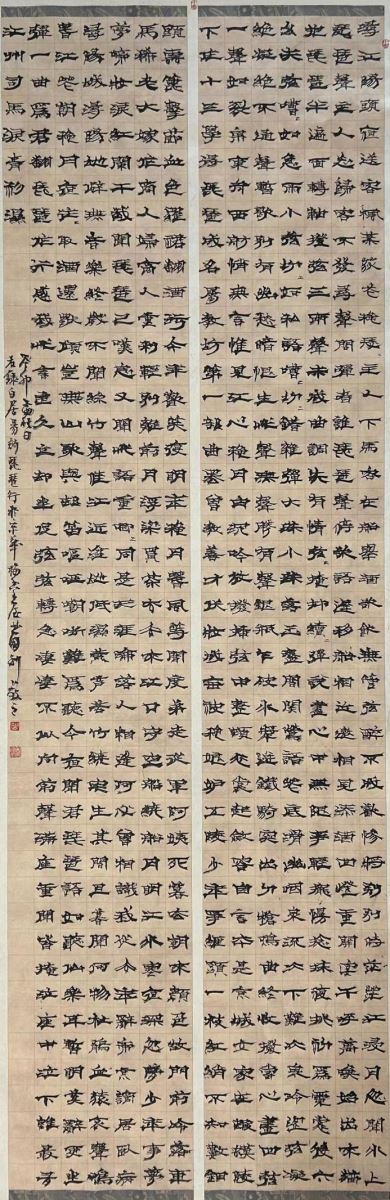 潯陽江頭夜送客楓葉荻花秋瑟瑟主人下馬客在船舉酒欲飲無管弦醉不成歡慘將別別時茫茫江浸月忽聞水上
琵琶聲主人忘歸客不發尋聲暗問彈者誰琵琶聲停欲語遲移船相近邀相見添酒回燈重開宴千呼萬喚始出來猶抱
琵琶半遮面轉軸撥弦三兩聲未成曲調先有情弦弦掩抑聲聲思似訴平生不得志低眉信手續續彈說盡心中無限事輕攏慢撚抹復挑初爲霓裳後六
幺大弦嘈嘈如急雨小弦切切如私語嘈嘈切切錯雜彈大珠小珠落玉盤間關鶯語花底滑幽咽泉流冰下難冰泉冷澀弦凝
絕凝絕不通聲暫歇別有幽愁暗恨生此時無聲勝有聲銀瓶乍破水漿迸鐵騎突出刀槍鳴曲終收撥當心畫四弦
一聲如裂帛東船西舫悄無言唯見江心秋月白沉吟放撥插弦中整頓衣裳起斂容自言本是京城女家在蝦蟆陵
下住十三學得琵琶成名屬教坊第一部曲罷曾教善才伏妝成每被秋娘妒五陵年少爭纏頭一曲紅綃不知數鈿
頭銀篦擊節碎血色羅裙翻酒污今年歡笑復明年秋月春風等閑度弟走從軍阿姨死暮去朝來顏色故門前冷落車
馬稀老大嫁作商人婦商人重利輕別離前月浮梁買茶去去來江口守空船繞船月明江水寒夜深忽夢少年事
夢啼妝淚紅闌干我聞琵琶已嘆息又聞此語重唧唧同是天涯淪落人相逢何必曾相識我從去年辭帝京謫居臥病
潯陽城潯陽地僻無音樂終歲不聞絲竹聲住近湓江地低濕黃蘆苦竹繞宅生其間旦暮聞何物杜鵑啼血猿哀鳴
春江花朝秋月夜往往取酒還獨傾豈無山歌與村笛嘔啞嘲哳難爲聽今夜聞君琵琶語如聽仙樂耳暫明莫辭更坐
彈一曲爲君翻作琵琶行感我此言良久立卻坐促弦弦轉急淒淒不似向前聲滿座重聞皆掩泣座中泣下誰最多
江州司馬青衫濕
癸卯日
右錄白居易詩琵琶行於京華